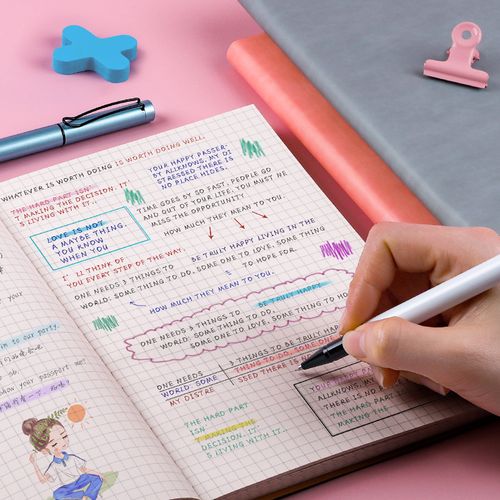 WHATEVER IS WORTH DOING IS WORTH DOING WELL.
"THE HARD PART ISN"
T MAKING THE DECISION. IT
S LIVING WITH IT..
YOUR HAPPY PASSER-
BY ALLKNOWS, MY DI
STRESSED THERE IS
NO PLACE HIDES.
LOVE IS NOT
A MAYBE THING.
YOU KNOW
WHEN YOU
TIME GOES BY SO FAST, PEOPLE GO
AND OUT OF YOUR LIFE. YOU MUST ME
MISS THE OPPORTUNITY
HOW MUCH THEY MEAN TO YOU.
I' LL THINK OF
YOU EVERY STEP OF THE WAY.
BE TRULY HAPPY LIVING IN THE
ONE NEEDS 3 THINGS TO
WORLD: SOME THING TO DO. SOME ONE TO LOVE. SOME THING
TO HOPE FOR.
HOW MUCH THEY MEAN TO YOU.
ONE NEEDS 3 THINGS TO BE TRULY HAPPY
WORLD: SOME THING TO DO. SOME
ONE TO LOVE, SOME THING TO H
ONE NEEDS 3 THINGS TO BE TRULY HAP
WORLD: SOME THING TO DO. SOME ONE
MY DISTRE SSED THERE IS NO
THE HARD PART
ISN
T MAKING THE
DECISION. IT
S LIVING WITH IT..
YOUR HAPPY
ALLKNOWS, MY
THERE IS NO
THE HARD PART
MAKING THE
your
im to our party.
show your passport me?